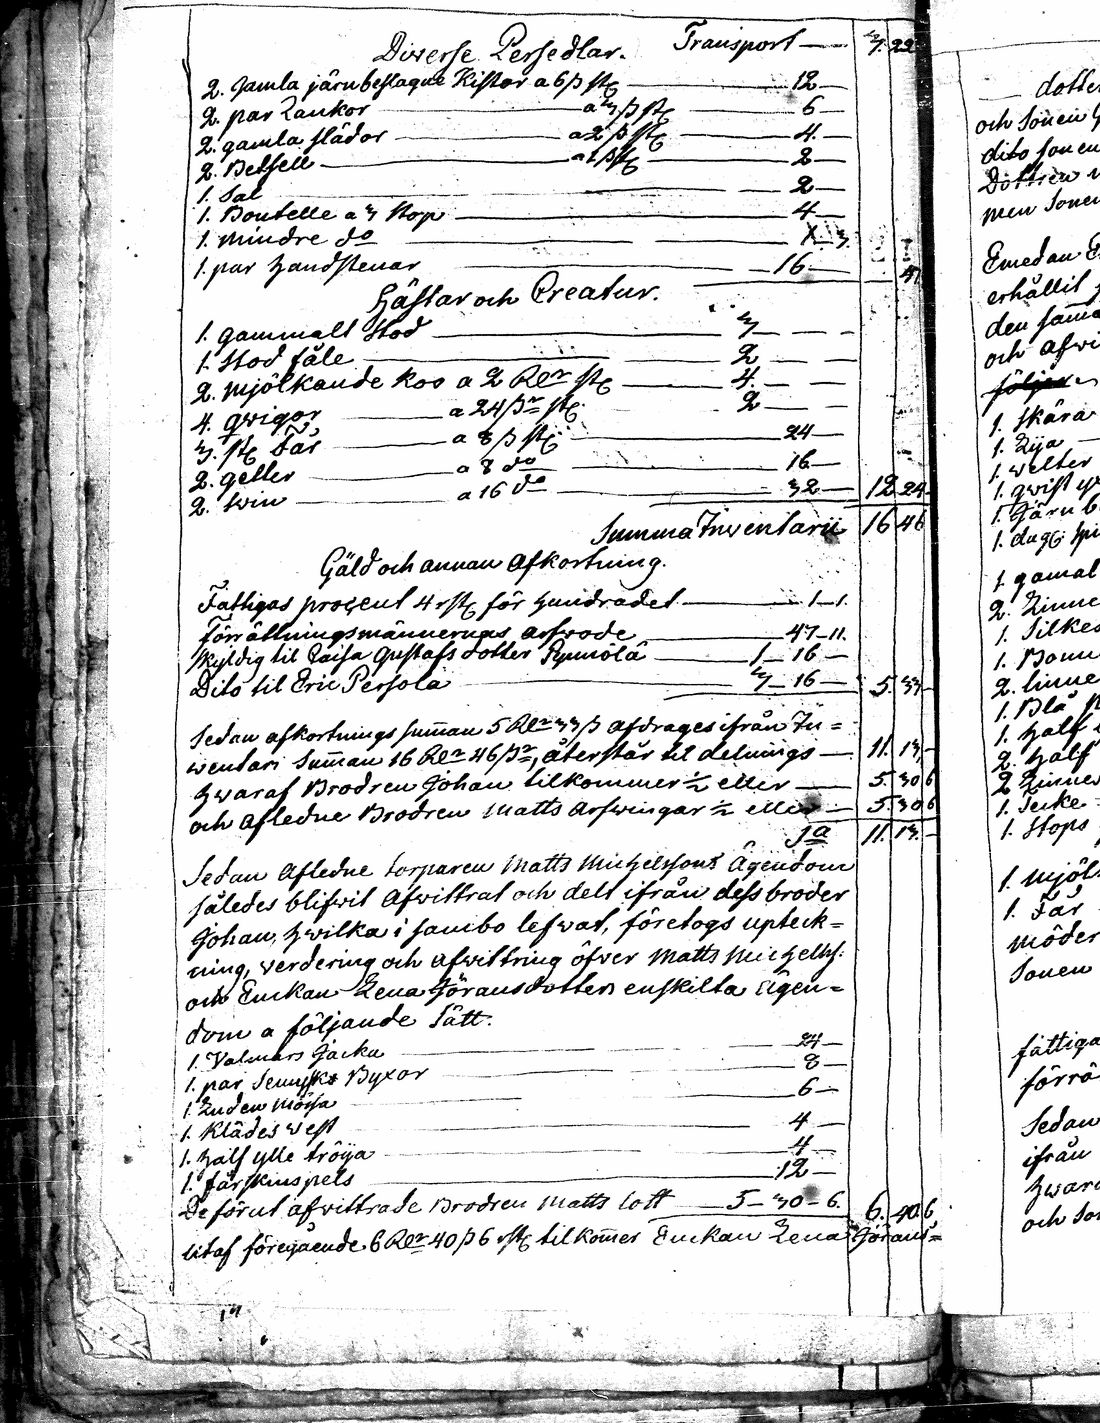 Diverse Persedlar. Transport — 3. 22
2. gamla järnbeslagne Kistor a 6 ß st. — 12 —
2. par Rankor — a 3 ß st. — 6 —
2. gamla slädor — a 2 ß st. — 4. —
2. Betsell — a 1 ß st. — 2 —
1. Sal — 2 —
1. Boutelle a 3 stop — 4 —
1. mindre do — 3.
1. par Handstenar — 16 —
Hästar och Creatur.
1. gammalt Stod — 3 — —
1. Stod fåle — 2 — —
2. mjölkande koo a 2 Rdr st. — 4. — —
4. qwigor — a 24 ßr st. — 2 — —
3. st. Får — a 8 ß st. — 24 —
2. getter — a 8 do — 16 —
2. swin — a 16 do — 32 — 12 24
Summa Inventarii 16 46
Gäld och annan Afkortning.
Fattigas procent 4 rst. för hundradet — 1 — 1.
Förrättningsmännernas arfwode — 47 — 11.
Skyldig til Caisa Gustafs dotter — 1 — 16 —
Dito til Eric Persola — 3 — 16 — 5. 33
Sedan afkortnings sum̄an 5 Rdr 33 ß afdrages ifrån In=
wentari Sum̄an 16 Rdr 46 ßr, återstår til delnings — 11. 13.
hwaraf Brodren Johan tilkommer ½ eller — 5. 30 6
och Afledne Brodren Matts Arfwingar ½ eller — 5. 30 6
Sa 11. 13.
Sedan Afledne torparen Matts Michelssons Ägendom
således blifwit Afwittrat och delt ifrån dess broder
Johan, hwilka i sambo lefwat, företogs upteck=
ning, verdering och afwittring öfver Matts Michelss:
och Enkan Lena Göransdotters enskilta Ägen=
dom a följande Sätt.
1. Valmars Jacka — 24 —
1. par Byxor — 8 —
1. Luden Mössa — 6 —
1. Klädes west — 4 —
1. half ylle tröija — 4 —
1. färskinspels — 12 —
De förut afwittrade Brodren Matts lott — 5 — 30 — 6. 6. 40 6
Utaf föregående 6 Rdr 40 ß 6 rst. tilkom̄er Enckan Lena Görans=
dotte
och Sonen
dito sonen
Döttren
men Sonen
Emedan
erhållit
den sama
och afwi
följer
1. Skära
1. Lija —
1. welter
1. qwist
1. Järn
1. dug.
1. gamal
2. Linne
1. Silkes
1. Bom
2. linne
1. Blå
1. half
2. half
2 Linne
1. Teike
1. Stops
1. mjölk
1. Får
möder
Sonen
fattiga
förrä
Sedan
ifrån
hwara
och